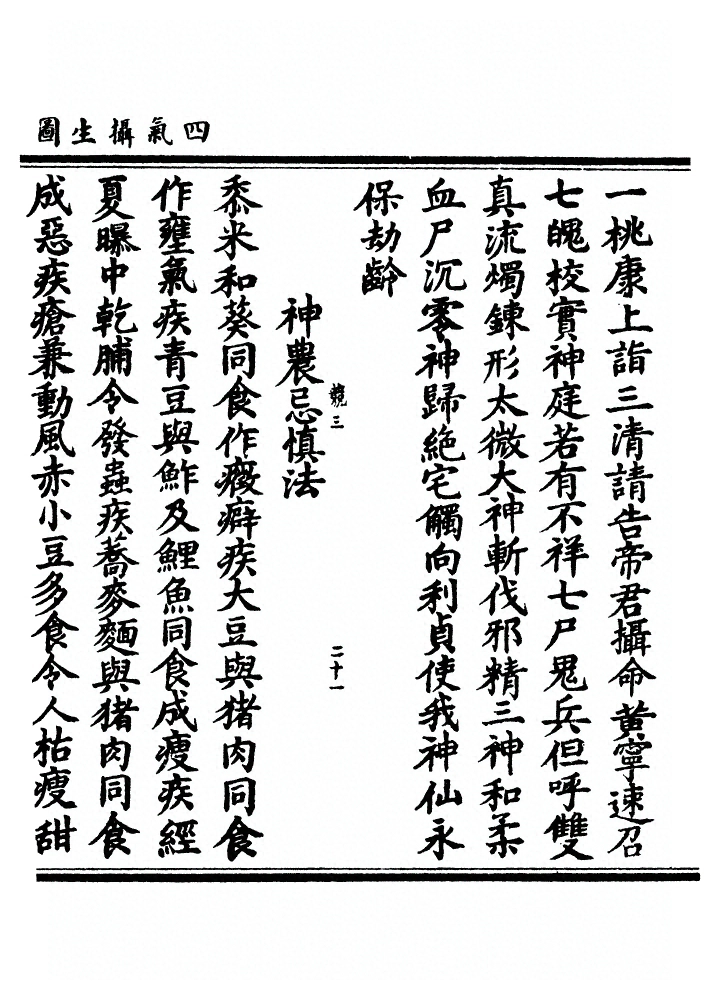 四氣攝生圖
一桃康上詣三清請告帝君攝命黄寧速召
七魄校實神庭若有不祥七尸鬼兵但呼雙
真流燭錬形太微大神斬伐邪精三神和柔
血尸沉零神歸絶宅觸向利貞使我神仙永
保劫齡
競三
二十一
神農忌慎法
黍米和葵同食作癥癖疾大豆與猪肉同食
作壅氣疾青豆與鮓及鯉魚同食成瘦疾經
夏曝中乾脯令發蟲疾蕎麥麵與猪肉同食
成惡疾瘡兼動風赤小豆多食令人枯瘦甜